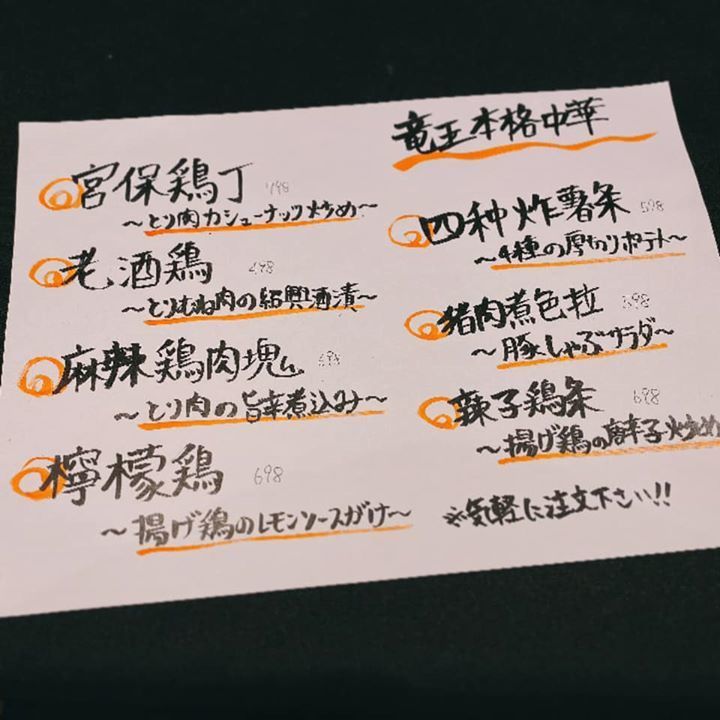 竜王本格中華
宮保鶏丁 498
～とり肉カシューナッツ炒め～
老酒鶏 498
～とりむね肉の紹興酒漬～
麻辣鶏肉塊 698
～とり肉の旨辛煮込み～
檸檬鶏 698
～揚げ鶏のレモンソースがけ～
四种炸薯条 598
～4種の厚切りポテト～
猪肉煮色拉 598
～豚しゃぶサラダ～
辣子鶏条 698
～揚げ鶏の唐辛子炒め
※気軽に注文下さい!!